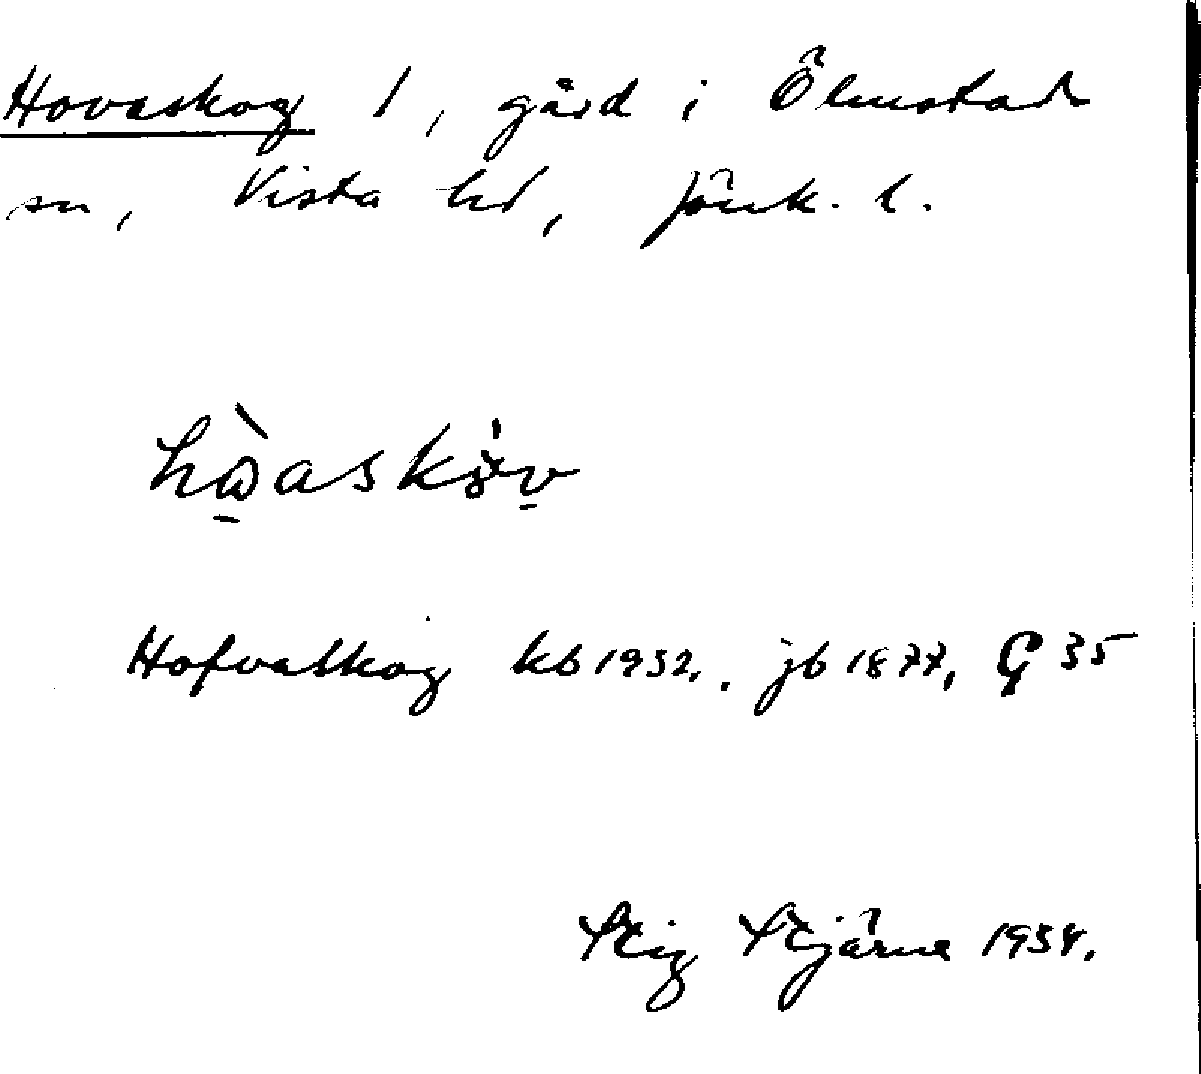 Hovaskog 1, gård i Ölmstad
sn, Vista hd, Jönk. l.
Hofvaskog kb 1932, jb 1877, G 35
Stig Stjärne 1934.